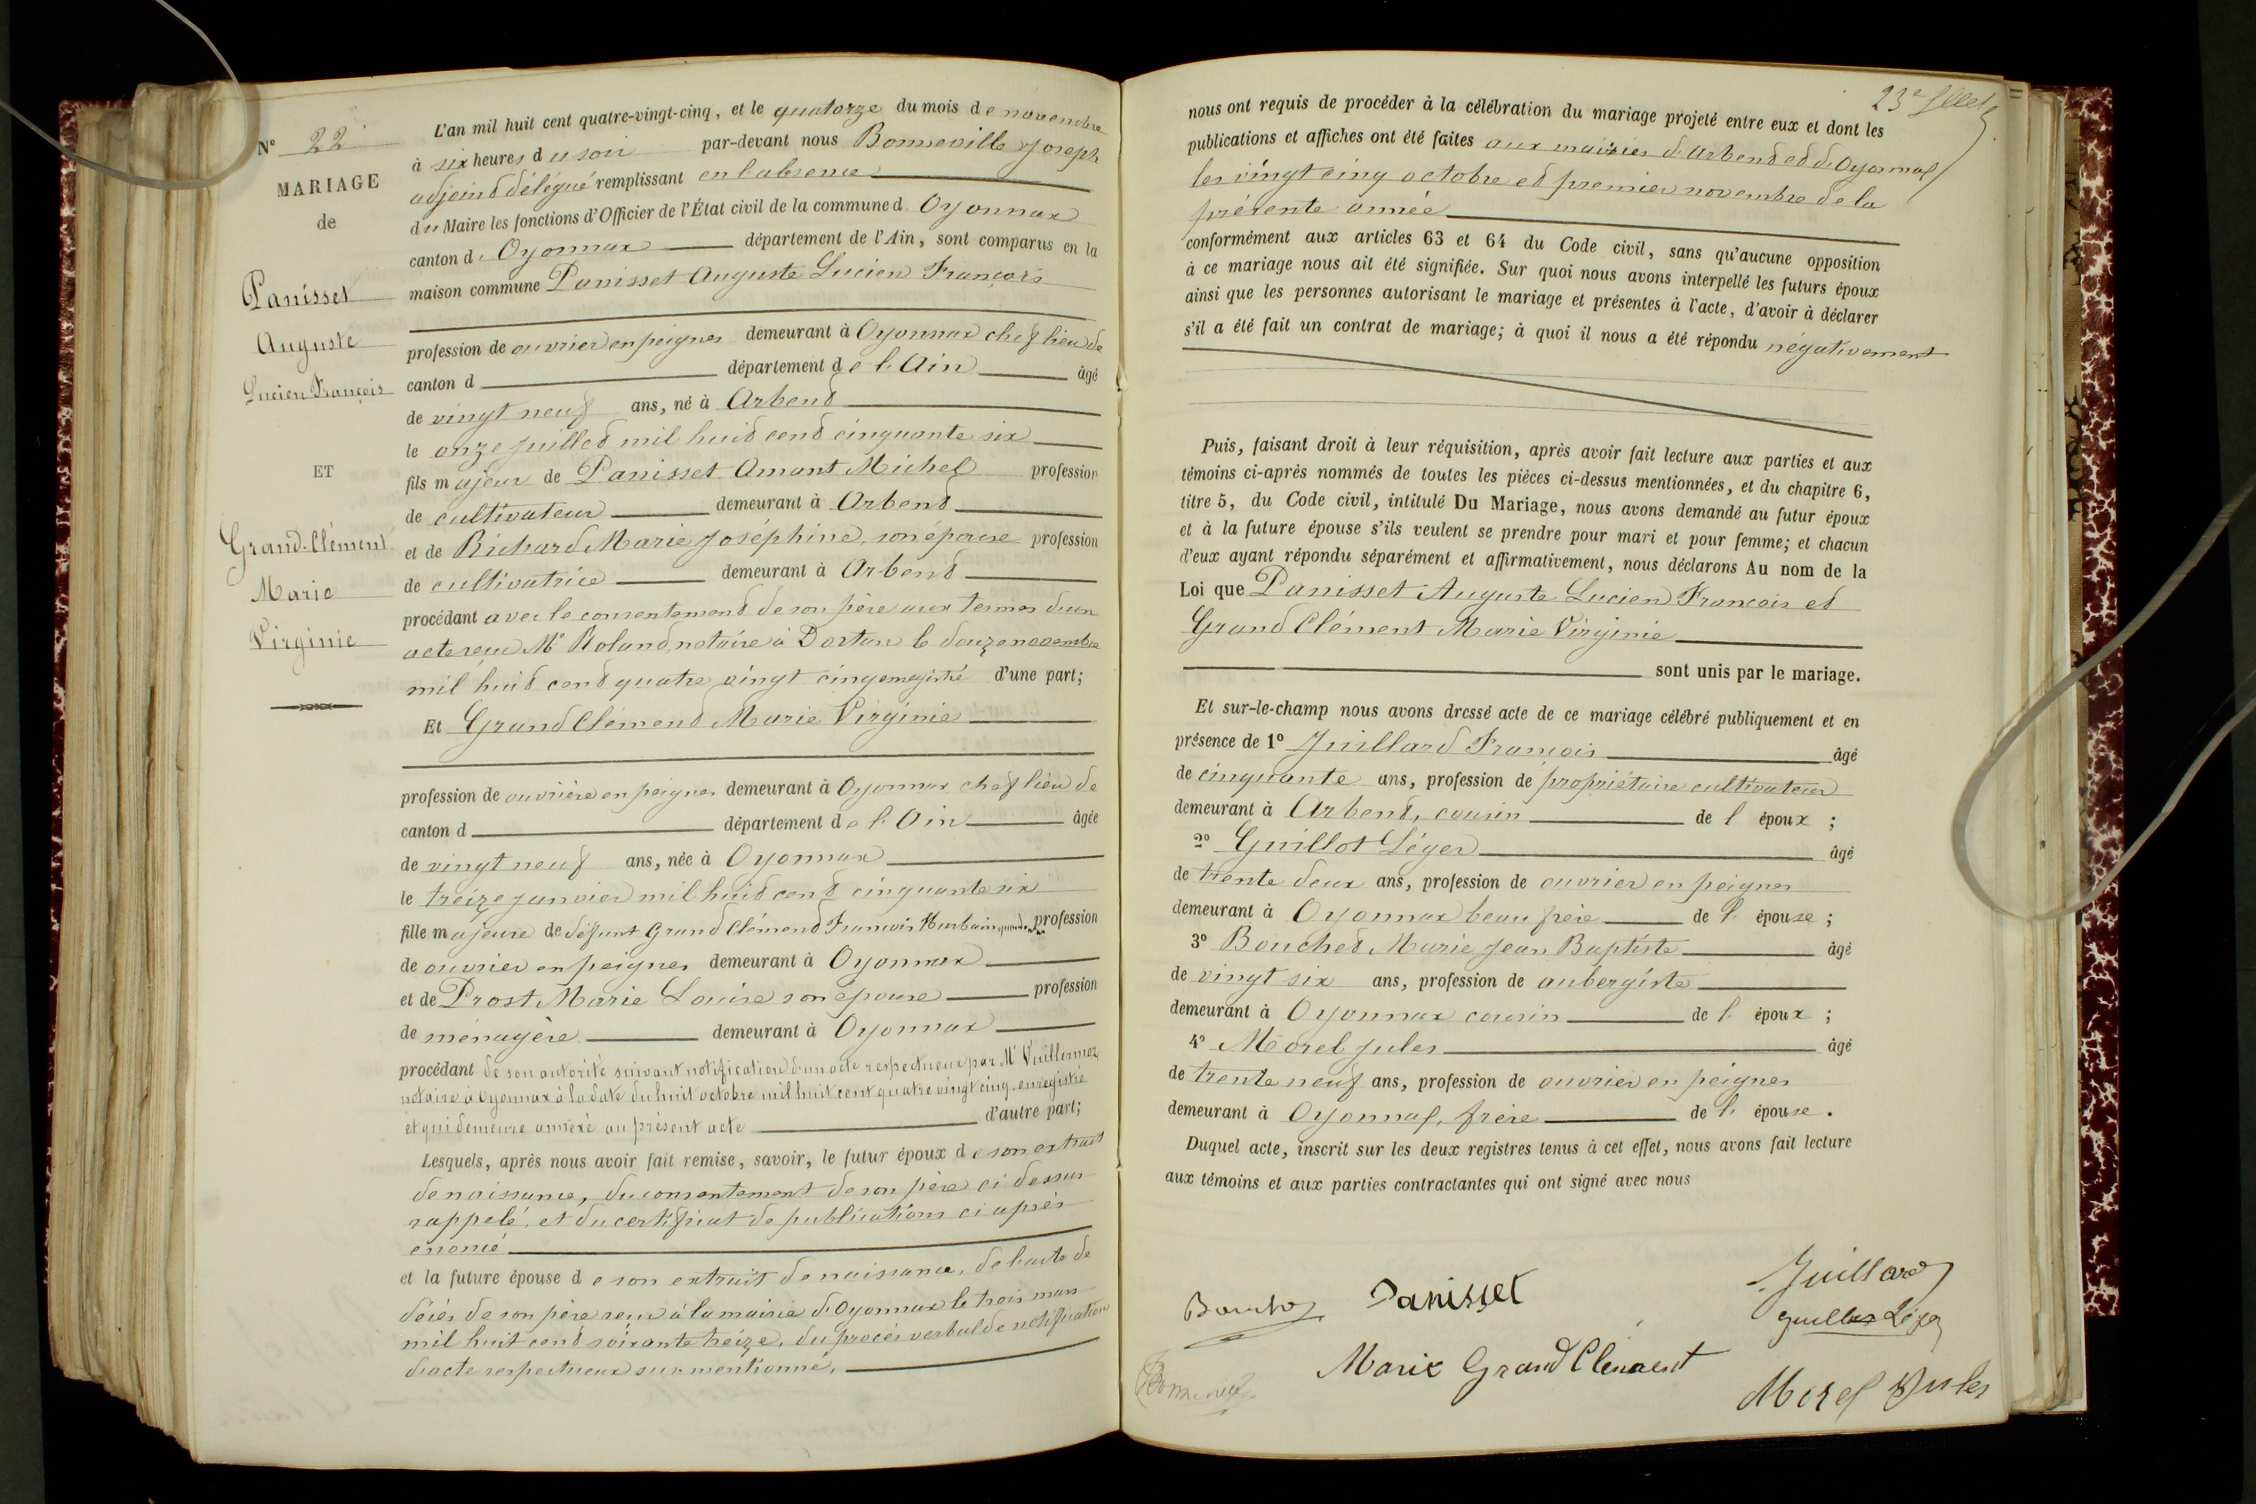 N° 22
MARIAGE
de
Panisset
Auguste
Lucien François
ET
Grand-Clément
Marie
Virginie
L'an mil huit cent quatre-vingt-cinq, et le quatorze du mois de novembre
à six heures du soir par-devant nous Bonneville Joseph
adjoint délégué remplissant en l'absence
du Maire les fonctions d'Officier de l'État civil de la commune d Oyonnax
canton d' Oyonnax département de l'Ain, sont comparus en la
maison commune Panisset Auguste Lucien François
profession de ouvrier en peignes demeurant à Oyonnax chef lieu de
canton d département de l'Ain âgé
de vingt neuf ans, né à Arbent
le onze juillet mil huit cent cinquante six
fils majeur de Panisset Amant Michel profession
de cultivateur demeurant à Arbent
et de Richard Marie Joséphine, son épouse profession
de cultivatrice demeurant à Arbent
procédant avec le consentement de son père aux termes d'un
acte reçu Me Roland, notaire à Dortan le douze novembre
mil huit cent quatre vingt cinq enregistré d'une part;
Et Grand Clément Marie Virginie
profession de ouvrière en peignes demeurant à Oyonnax chef lieu de
canton d département de l'Ain âgée
de vingt neuf ans, née à Oyonnax
le treize janvier mil huit cent cinquante six
fille majeure de défunt Grand Clément François Hurbain profession
de ouvrier en peignes demeurant à Oyonnax
et de Prost Marie Louise son épouse profession
de ménagère demeurant à Oyonnax
procédant de son autorité suivant notification d'un acte respectueux par Me Vuillermoz
notaire à Oyonnax à la date du huit octobre mil huit cent quatre vingt cinq, enregistré
et qui demeure annexé au présent acte d'autre part;
Lesquels, après nous avoir fait remise, savoir, le futur époux de son extrait
de naissance, du consentement de son père ci dessus
rappelé, et du certificat de publications ci après
énoncé
et la future épouse de son extrait de naissance, de l'acte de
décès de son père reçu à la mairie d'Oyonnax le trois mars
mil huit cent soixante treize, du procès verbal de notification
d'acte respectueux sus-mentionné.
23e fllet
nous ont requis de procéder à la célébration du mariage projeté entre eux et dont les
publications et affiches ont été faites aux mairies d'Arbent et d'Oyonnax
les vingt cinq octobre et premier novembre de la
présente année
conformément aux articles 63 et 64 du Code civil, sans qu'aucune opposition
à ce mariage nous ait été signifiée. Sur quoi nous avons interpellé les futurs époux
ainsi que les personnes autorisant le mariage et présentes à l'acte, d'avoir à déclarer
s'il a été fait un contrat de mariage; à quoi il nous a été répondu négativement
Puis, faisant droit à leur réquisition, après avoir fait lecture aux parties et aux
témoins ci-après nommés de toutes les pièces ci-dessus mentionnées, et du chapitre 6,
titre 5, du Code civil, intitulé Du Mariage, nous avons demandé au futur époux
et à la future épouse s'ils veulent se prendre pour mari et pour femme; et chacun
d'eux ayant répondu séparément et affirmativement, nous déclarons Au nom de la
Loi que Panisset Auguste Lucien François et
Grand Clément Marie Virginie
sont unis par le mariage.
Et sur-le-champ nous avons dressé acte de ce mariage célébré publiquement et en
présence de 1° Juillard François âgé
de cinquante ans, profession de propriétaire cultivateur
demeurant à Arbent, cousin de l époux ;
2° Guillot Léger âgé
de trente deux ans, profession de ouvrier en peignes
demeurant à Oyonnax beau frère de l' épouse ;
3° Bouchet Marie Jean Baptiste âgé
de vingt six ans, profession de aubergiste
demeurant à Oyonnax cousin de l' époux ;
4° Morel Jules âgé
de trente neuf ans, profession de ouvrier en peignes
demeurant à Oyonnax, frère de l' épouse.
Duquel acte, inscrit sur les deux registres tenus à cet effet, nous avons fait lecture
aux témoins et aux parties contractantes qui ont signé avec nous
Juillard
Panisset
Guillot Léger
Marie Grand Clément
Morel Jules